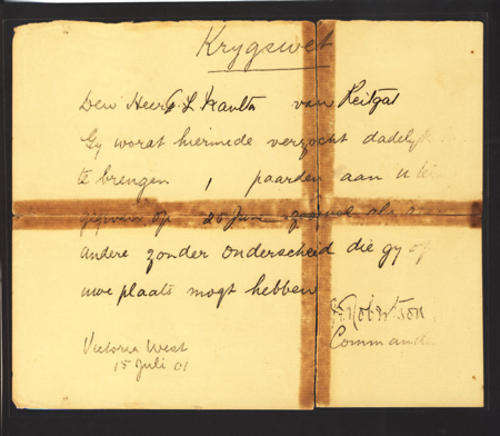 Krygswet
Den Heer L van Reitgat
Gy worat hiermede verzocht dadelyk
te brengen 1 paarden aan u
gegeven op 26 Juni als
andere zonder onderscheid die gy op
uwe plaats mogt hebben
Robertson
Comman
Victoria West
15 Juli 01